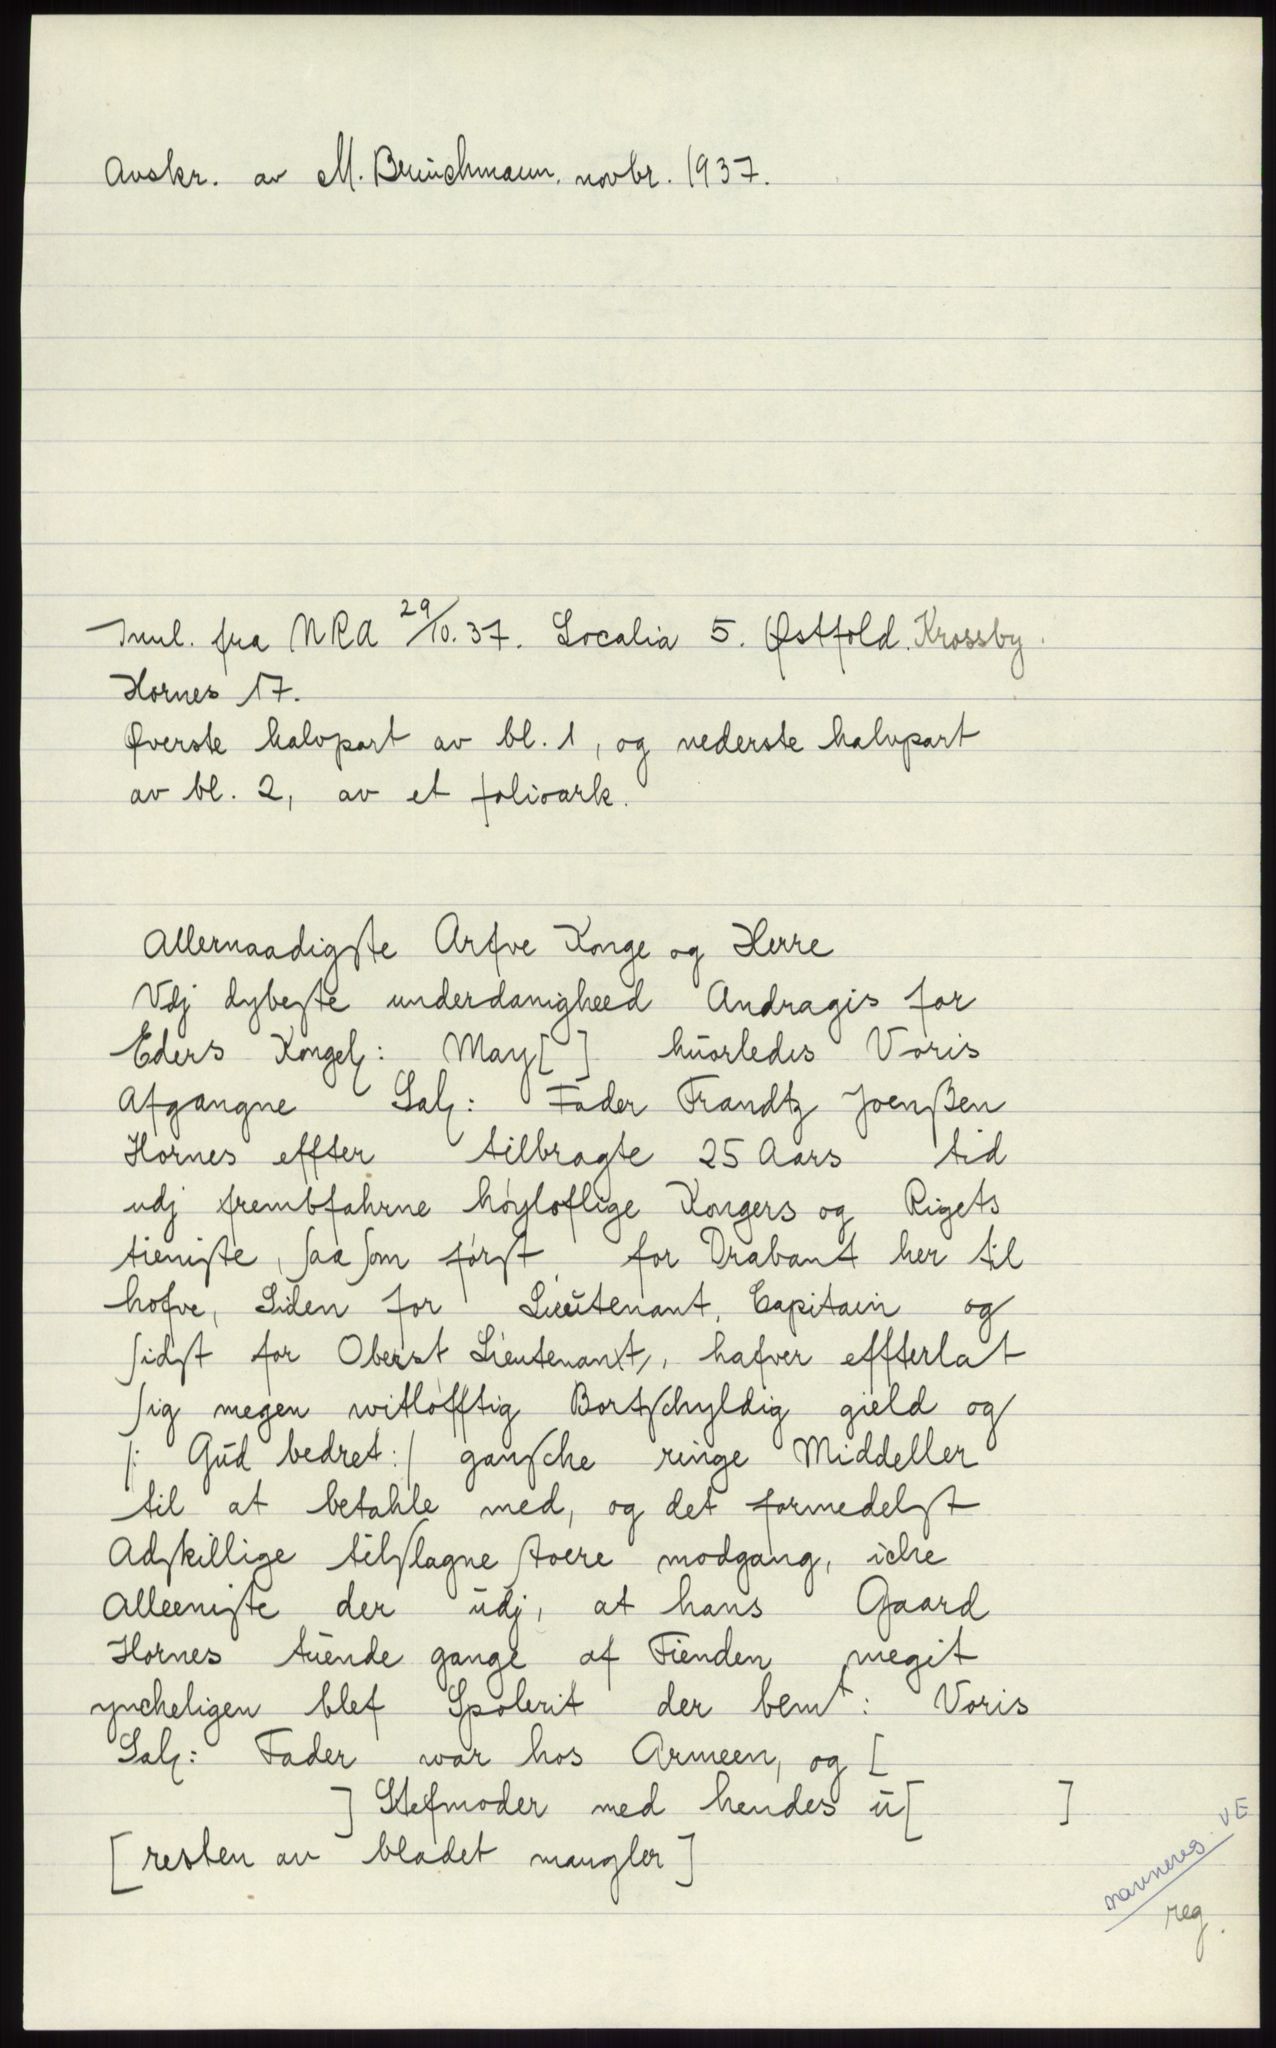 Avskr. av M. Bruuchmann. novbr. 1937.
Innl. fra NRA 29/10.37. Localia 5. Østfold. Krossby.
Hornes 17.
Øverste halvpart av bl. 1, og nederste halvpart
av bl. 2, av et folioark.
Allernaadigste Arfve Konge og Herre
Vdj dybeste underdanigheed Andragis for
Eders Kongel: May[ ] huorledis Voris
Afgangne Sal: Fader Frandtz Joenßen
Hornes effter tilbragte 25 Aars tid
udj frembfahrne høyloflige Kongers og Rigets
tieniste, saa som først for Drabant her til
hofve, Siden for Lieutenant, Capitain og
sidst for Oberst Lieutenant, hafver effterlat
sig megen witløfftig Bortschyldig gield og
/: Gud bedret:/ gansche ringe Middeller
til at betahle med, og det formedelst
Adskillige tilslagne stoere modgang, iche
Alleeniste der udj, at hans Gaard
Hornes tuende gange af Fienden megit
yncheligen blef Spolerit der bemt: Voris
Sal: Fader war hos Armeen, og [
] Stefmoder med hendes u[ ]
[resten av bladet mangler]
navnereg. VE
reg.